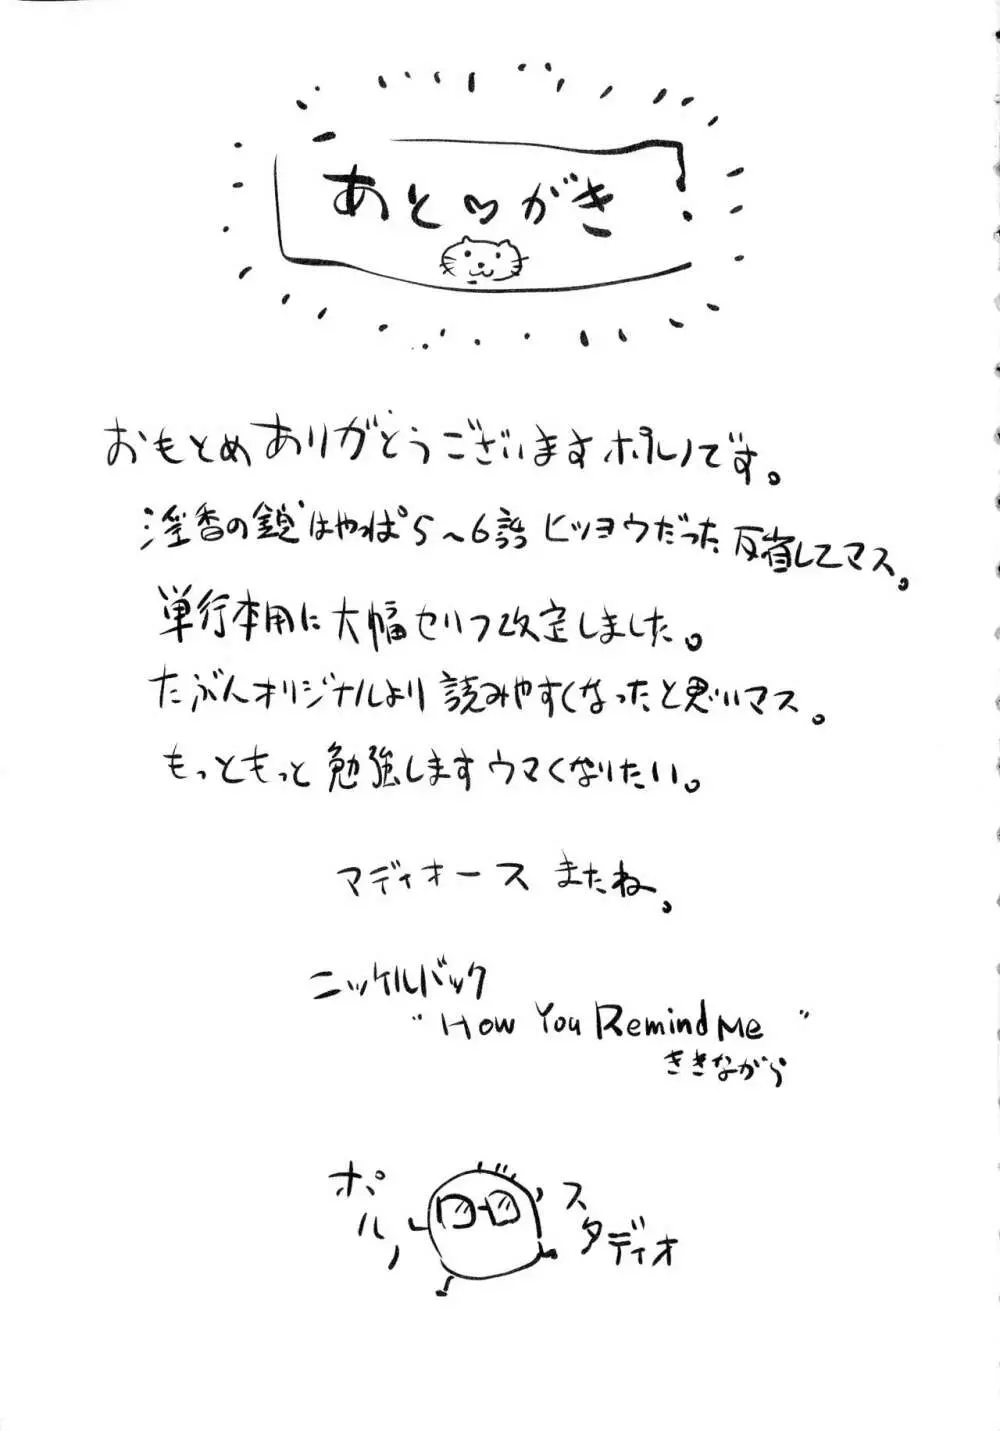 あと♡がき
おもとめありがとうございますポルノです。
淫香の鎖はやっぱ5～6話ヒツヨウだった反省してマス。
単行本用に大幅セリフ改定しました。
たぶんオリジナルより読みやすくなったと思いマス。
もっともっと勉強しますウマくなりたい。
マディオース またね。
ニッケルバック
"How You Remind Me"
ききながら
ポルノスタディオ